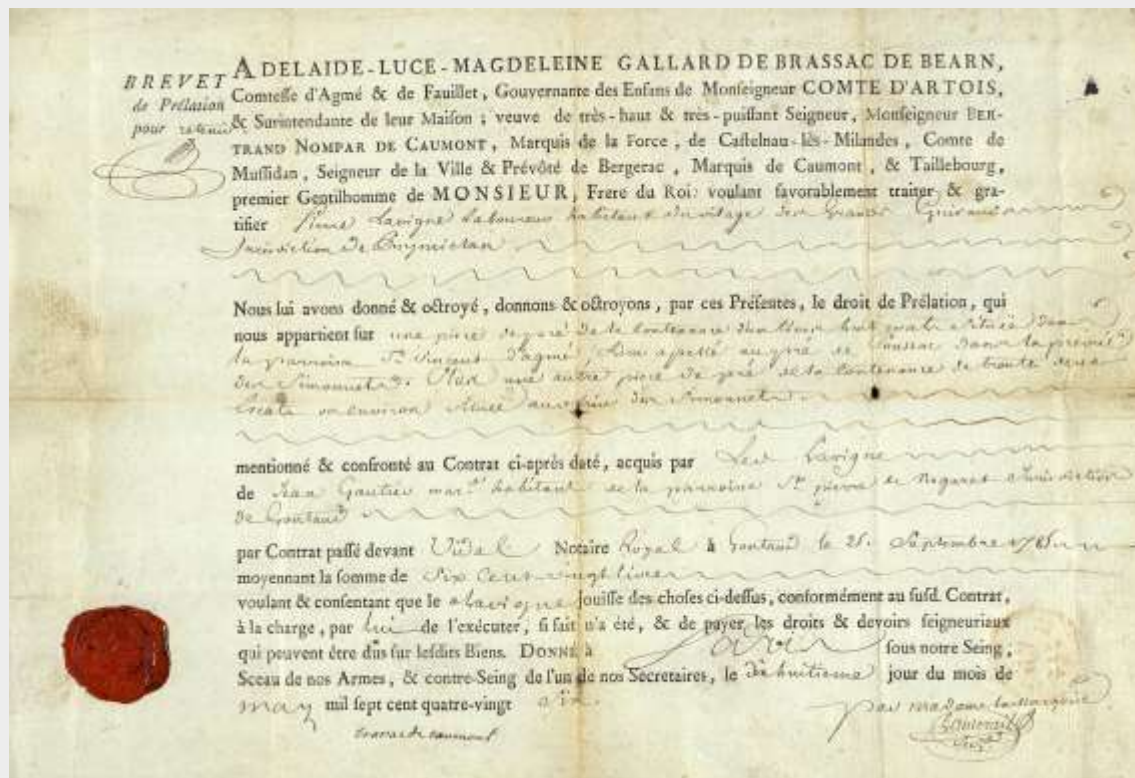 BREVET
de Prélation
pour retenir
ADELAIDE-LUCE-MAGDELEINE GALLARD DE BRASSAC DE BEARN,
Comtesse d'Agmé & de Fauillet, Gouvernante des Enfans de Monseigneur COMTE D'ARTOIS,
& Surintendante de leur Maison ; veuve de très-haut & très-puissant Seigneur, Monseigneur BER-
TRAND NOMPAR DE CAUMONT, Marquis de la Force, de Castelnau-lès-Milandes, Comte de
Mussidan, Seigneur de la Ville & Prévôté de Bergerac, Marquis de Caumont, & Taillebourg,
premier Gentilhomme de MONSIEUR, Frere du Roi: voulant favorablement traiter & gra-
tifier Lavigne Laboureur habitant du village des
Jurisdiction de
Nous lui avons donné & octroyé, donnons & octroyons, par ces Présentes, le droit de Prélation, qui
nous appartient sur une piece de pré de la Contenance situeé dans
la parroisse St Vincent d'agmé
des Simonnets. Plus une autre piece de pré de la Contenance de trente
ou environ situeé des Simonnets
mentionné & confronté au Contrat ci-après daté, acquis par Led Lavigne
de Jean Gautier habitant de la parroisse St pierre de Nogaret Jurisdiction
de Gontaud
par Contrat passé devant Vidal Notaire Royal à Gontaud le Septembre
moyennant la somme de Six Cent vingt livres
voulant & consentant que le Lavigne jouisse des choses ci-dessus, conformément au susd. Contrat,
à la charge, par lui de l'exécuter, si fait n'a été, & de payer les droits & devoirs seigneuriaux
qui peuvent être dûs sur lesdits Biens. DONNÉ à sous notre Seing,
Sceau de nos Armes, & contre-Seing de l'un de nos Secretaires, le dixhuitieme jour du mois de
may mil sept cent quatre-vingt six.
par madame la marquise